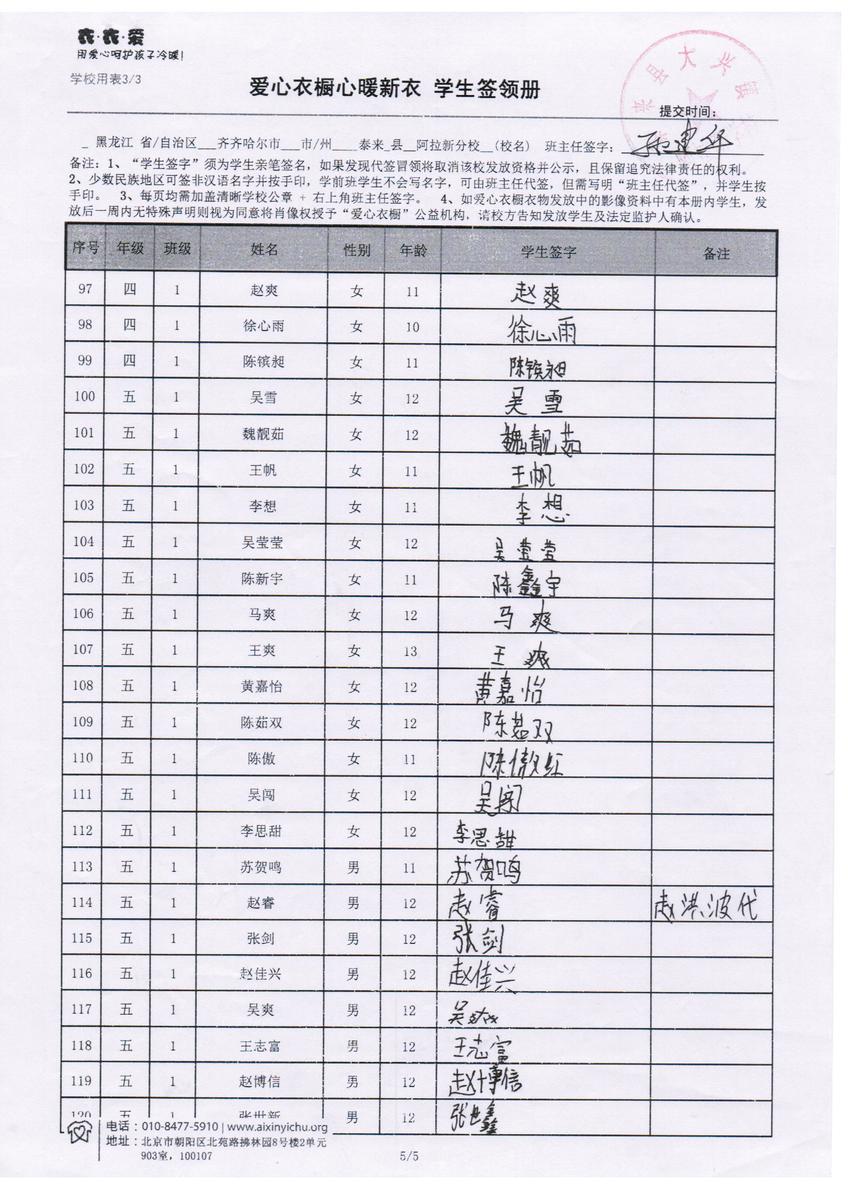 衣·衣·爱
用爱心呵护孩子冷暖!
学校用表3/3
爱心衣橱心暖新衣 学生签领册
提交时间:
县大兴镇
_ 黑龙江 省/自治区___齐齐哈尔市___市/州____泰来_县__阿拉新分校__(校名) 班主任签字:
备注:1、“学生签字”须为学生亲笔签名,如果发现代签冒领将取消该校发放资格并公示,且保留追究法律责任的权利。
2、少数民族地区可签非汉语名字并按手印,学前班学生不会写名字,可由班主任代签,但需写明“班主任代签”,并学生按
手印。 3、每页均需加盖清晰学校公章 + 右上角班主任签字。 4、如爱心衣橱衣物发放中的影像资料中有本册内学生,发
放后一周内无特殊声明则视为同意将肖像权授予“爱心衣橱”公益机构,请校方告知发放学生及法定监护人确认。
序号 年级 班级 姓名 性别 年龄 学生签字 备注
97 四 1 赵爽 女 11 赵爽
98 四 1 徐心雨 女 10 徐心雨
99 四 1 陈镔昶 女 11 陈镔昶
100 五 1 吴雪 女 12 吴雪
101 五 1 魏靓茹 女 12 魏靓茹
102 五 1 王帆 女 11 王帆
103 五 1 李想 女 11 李想
104 五 1 吴莹莹 女 12 吴莹莹
105 五 1 陈新宇 女 11 陈鑫宇
106 五 1 马爽 女 12 马爽
107 五 1 王爽 女 13 王爽
108 五 1 黄嘉怡 女 12 黄嘉怡
109 五 1 陈茹双 女 12 陈茹双
110 五 1 陈傲 女 11 陈傲红
111 五 1 吴闯 女 12 吴闯
112 五 1 李思甜 女 12 李思甜
113 五 1 苏贺鸣 男 11 苏贺鸣
114 五 1 赵睿 男 12 赵睿 赵洪波代
115 五 1 张剑 男 12 张剑
116 五 1 赵佳兴 男 12 赵佳兴
117 五 1 吴爽 男 12 吴爽
118 五 1 王志富 男 12 王志富
119 五 1 赵博信 男 12 赵博信
120 五 1 张世新 男 12 张世鑫
电话:010-8477-5910 | www.aixinyichu.org
地址:北京市朝阳区北苑路拂林园8号楼2单元
903室,100107
5/5